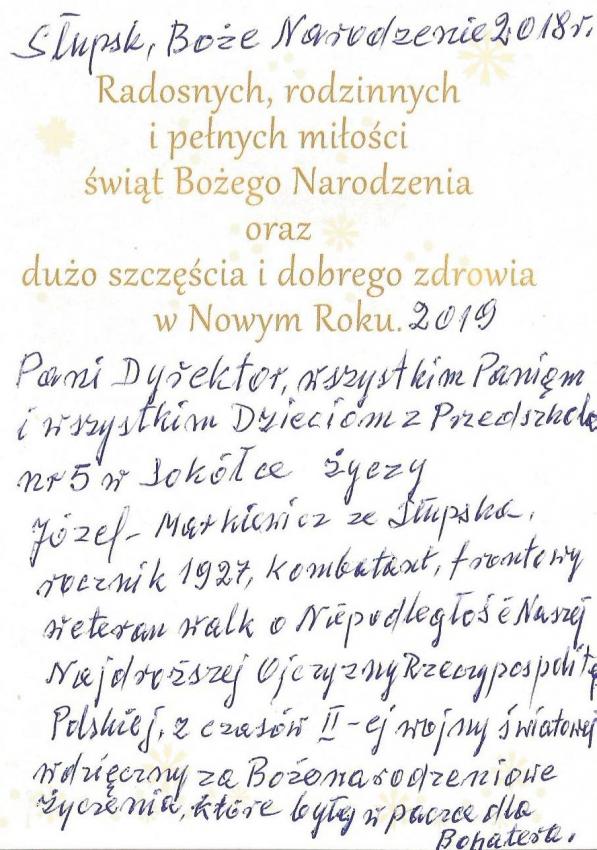 Słupsk, Boże Narodzenie 2018r.
Radosnych, rodzinnych
i pełnych miłości
świąt Bożego Narodzenia
oraz
dużo szczęścia i dobrego zdrowia
w Nowym Roku. 2019
Pani Dyrektor, wszystkim Paniom
i wszystkim Dzieciom z Przedszkola
nr 5 w Sokółce życzy
Józef - Markiewicz ze Słupska,
rocznik 1927, kombatant, frontowy
weteran walk o Niepodległość Naszej
Najdroższej Ojczyzny Rzeczypospolite
Polskiej, z czasów II-ej wojny światowej
wdzięczny za Bożonarodzeniowe
życzenia, które były w paczce dla
Bohatera.